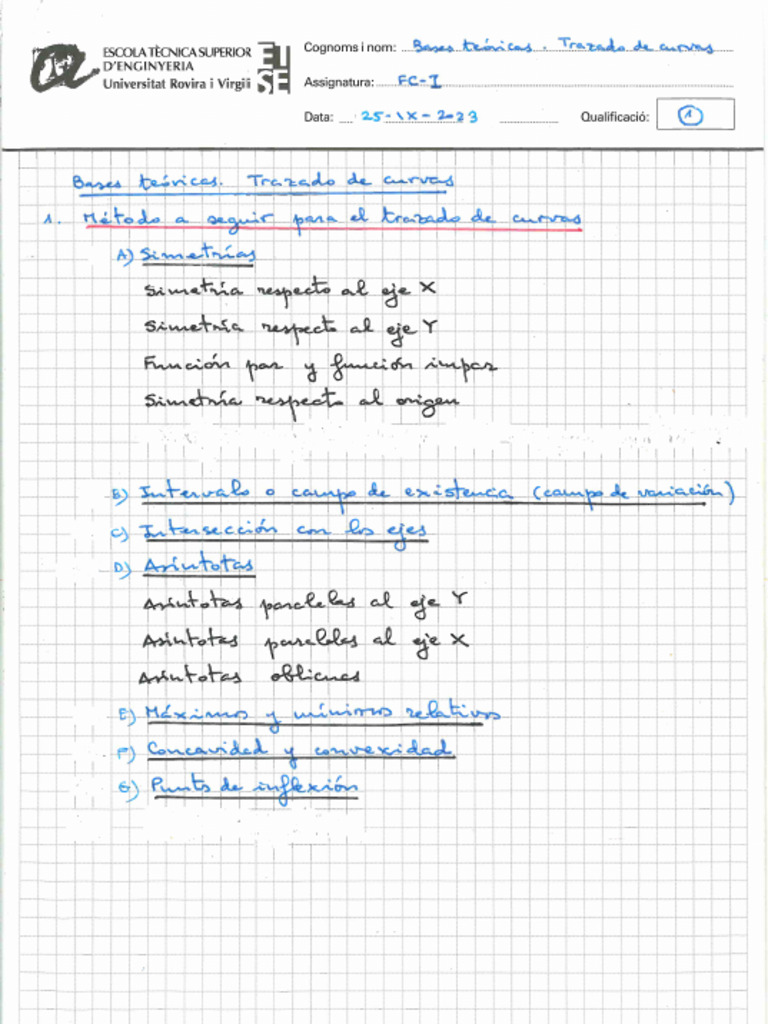 ESCOLA TÈCNICA SUPERIOR
D'ENGINYERIA
Universitat Rovira i Virgili
ET
SE
Cognoms i nom: Bases teóricas. Trazado de curvas
Assignatura: FC-I
Data: 25-IX-2023 Qualificació: 1
Bases teóricas. Trazado de curvas
1. Método a seguir para el trazado de curvas
A) Simetrías
Simetría respecto al eje X
Simetría respecto al eje Y
Función par y función impar
Simetría respecto al origen
B) Intervalo o campo de existencia (campo de variación)
C) Intersección con los ejes
D) Asíntotas
Asíntotas paralelas al eje Y
Asíntotas paralelas al eje X
Asíntotas oblicuas
E) Máximos y mínimos relativos
F) Concavidad y convexidad
G) Punto de inflexión